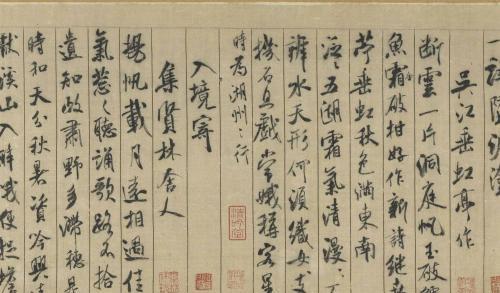 吳江垂虹亭作
斷雲一片洞庭帆玉破鱸
魚霜破柑好作新詩繼桑
苧垂虹秋色滿東南
泛泛五湖霜氣清漫漫不
辨水天形何須織女支
機石且戲常娥稱客星
時為湖州之行
入境寄
集賢林舍人
揚帆載月遠相過佳
氣蔥蔥聽誦歌路不拾
遺知政肅野多滯穗是
時和天分秋暑資吟興
獻溪山入醉哦便捉蟾